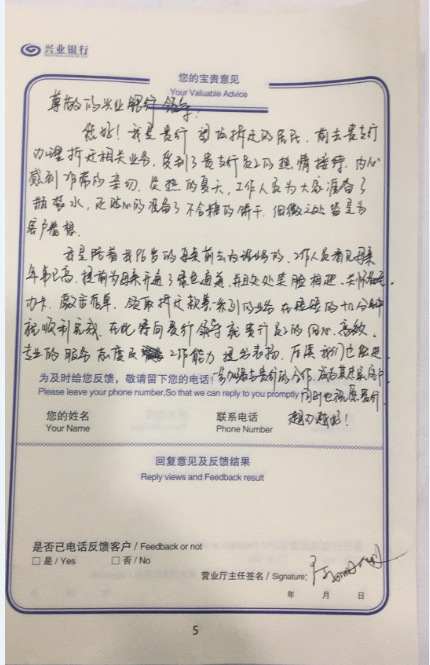 兴业银行
您的宝贵意见
Your Valuable Advice
尊敬的兴业银行领导:
您好!我是贵行 拆迁的居民,前去贵支行
办理拆迁相关业务,受到了贵支行员工的热情接待,内心
感到非常的亲切,炎热的夏天,工作人员为大家准备了
瓶装水,还贴心的准备了不含糖的饼干,细微之处皆是为
客户着想。
我是陪着我 的母亲前去办理业务的,工作人员看见母亲
年事已高,提前为母亲开通了绿色通道,并且处处笑脸相迎,
办卡、 领取拆迁款等系列的业务在短短的十几分钟
就顺利完成,在此特向贵行领导就贵行员工的细心、高效、
专业的服务态度及 工作能力 提出表扬,后续我们也会进
一步加强与贵行的合作,成为其忠实客户
为及时给您反馈,敬请留下您的电话
Please leave your phone number,So that we can reply to you promptly
同时也祝愿贵行
越办越好!
您的姓名
Your Name
联系电话
Phone Number
回复意见及反馈结果
Reply views and Feedback result
是否已电话反馈客户 / Feedback or not
□ 是 / Yes □ 否 / No
营业厅主任签名 / Signature:
年 月 日
5